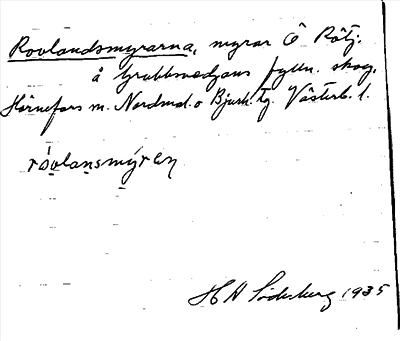 Rovlandsmyrarna, myrar Ö Rötj:
å Grubbsvedjans fjlln. skog,
Hörnefors m. Nordmal. o Bjurh. tg. Västerb. l.
róvlansmýren
H A Söderberg 1935